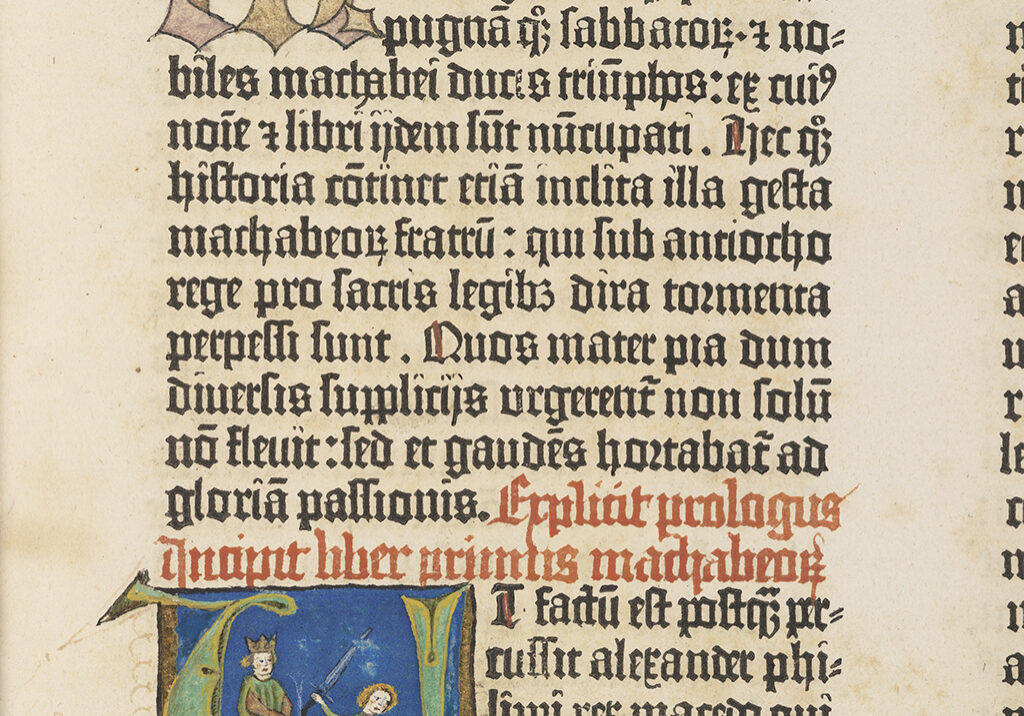 pugnā qꝫ sabbatoꝝ·⁊ no⸗
biles machabei duces triūphꝰ: ex cuiꝰ
noīe ⁊ libri ijdem sūt nūcupati. Hec qꝫ
historia cōtinet etiā inclita illa gesta
machabeoꝝ fratrū: qui sub antiocho
rege pro sacris legibꝫ dira tormenta
perpessi sunt. Quos mater pia dum
diuersis supplicijs vrgerent᷑ non solū
nō fleuit: sed et gaudēs hortabat᷑ ad
gloriā passionis. Explicit prologus
Incipit liber primus machabeoꝝ
T factū est postqꝫ per⸗
cussit alexander phi⸗
lippi rex macedo qui